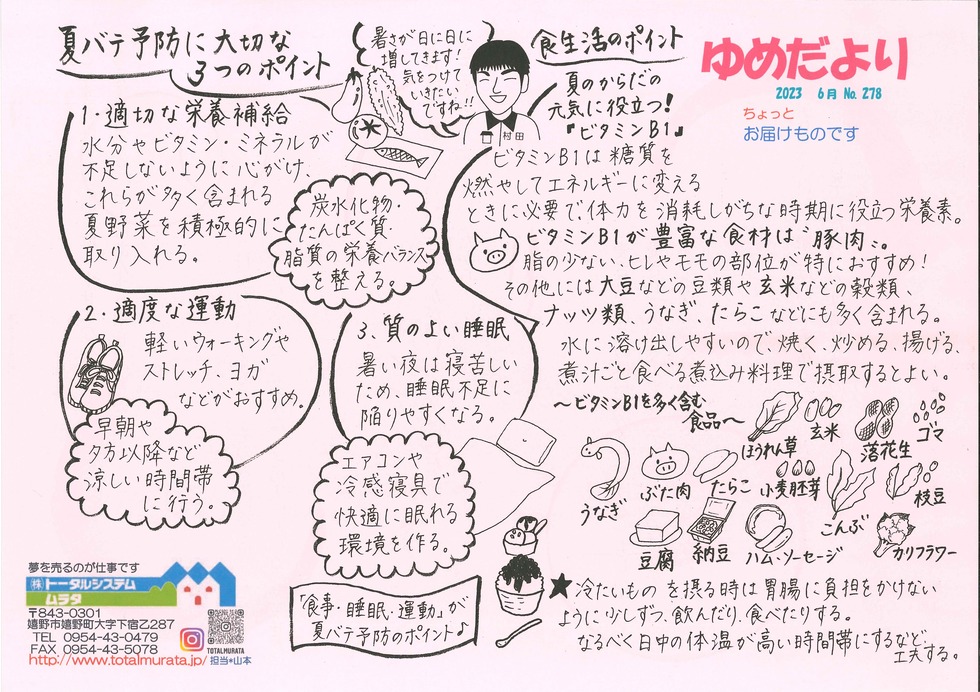 夏バテ予防に大切な
3つのポイント
暑さが日に日に
増してきます!
気をつけて
いきたい
ですね!!
村田
食生活のポイント
ゆめだより
2023 6月 No. 278
ちょっと
お届けものです
1.適切な栄養補給
水分やビタミン・ミネラルが
不足しないように心がけ、
これらが多く含まれる
夏野菜を積極的に
取り入れる。
炭水化物・
たんぱく質・
脂質の栄養バランス
を整える。
2.適度な運動
軽いウォーキングや
ストレッチ、ヨガ
などがおすすめ。
早朝や
夕方以降など
涼しい時間帯
に行う。
3.質のよい睡眠
暑い夜は寝苦しい
ため、睡眠不足に
陥りやすくなる。
エアコンや
冷感寝具で
快適に眠れる
環境を作る。
「食事・睡眠・運動」が
夏バテ予防のポイント♪
夏のからだの
元気に役立つ!
『ビタミンB1』
ビタミンB1は糖質を
燃やしてエネルギーに変える
ときに必要で、体力を消耗しがちな時期に役立つ栄養素。
ビタミンB1が豊富な食材は"豚肉"。
脂の少ない、ヒレやモモの部位が特におすすめ!
その他には大豆などの豆類や玄米などの穀類、
ナッツ類、うなぎ、たらこなどにも多く含まれる。
水に溶け出しやすいので、焼く、炒める、揚げる、
煮汁ごと食べる煮込み料理で摂取するとよい。
〜ビタミンB1を多く含む
食品〜
ほうれん草
玄米
落花生
ゴマ
うなぎ
ぶた肉
たらこ
小麦胚芽
こんぶ
枝豆
豆腐
納豆
ハム、ソーセージ
カリフラワー
★冷たいものを摂る時は胃腸に負担をかけない
ように少しずつ、飲んだり、食べたりする。
なるべく日中の体温が高い時間帯にするなど、
工夫する。
夢を売るのが仕事です
㈱トータルシステム
ムラタ
〒843-0301
嬉野市嬉野町大字下宿乙287
TEL 0954-43-0479
FAX 0954-43-5078
TOTALMURATA
http://www.totalmurata.jp/ 担当*山本